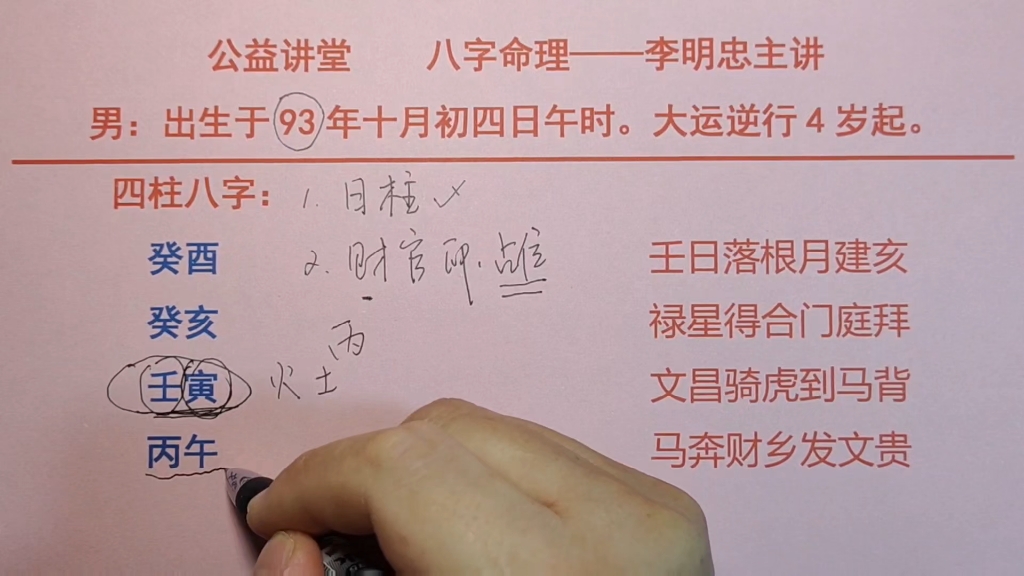 公益讲堂 八字命理——李明忠主讲
男：出生于93年十月初四日午时。大运逆行4岁起。
四柱八字： 1. 日柱✓
癸酉 2. 财官印. 壬日落根月建亥
癸亥 丙 禄星得合门庭拜
壬寅 火土 文昌骑虎到马背
丙午 马奔财乡发文贵